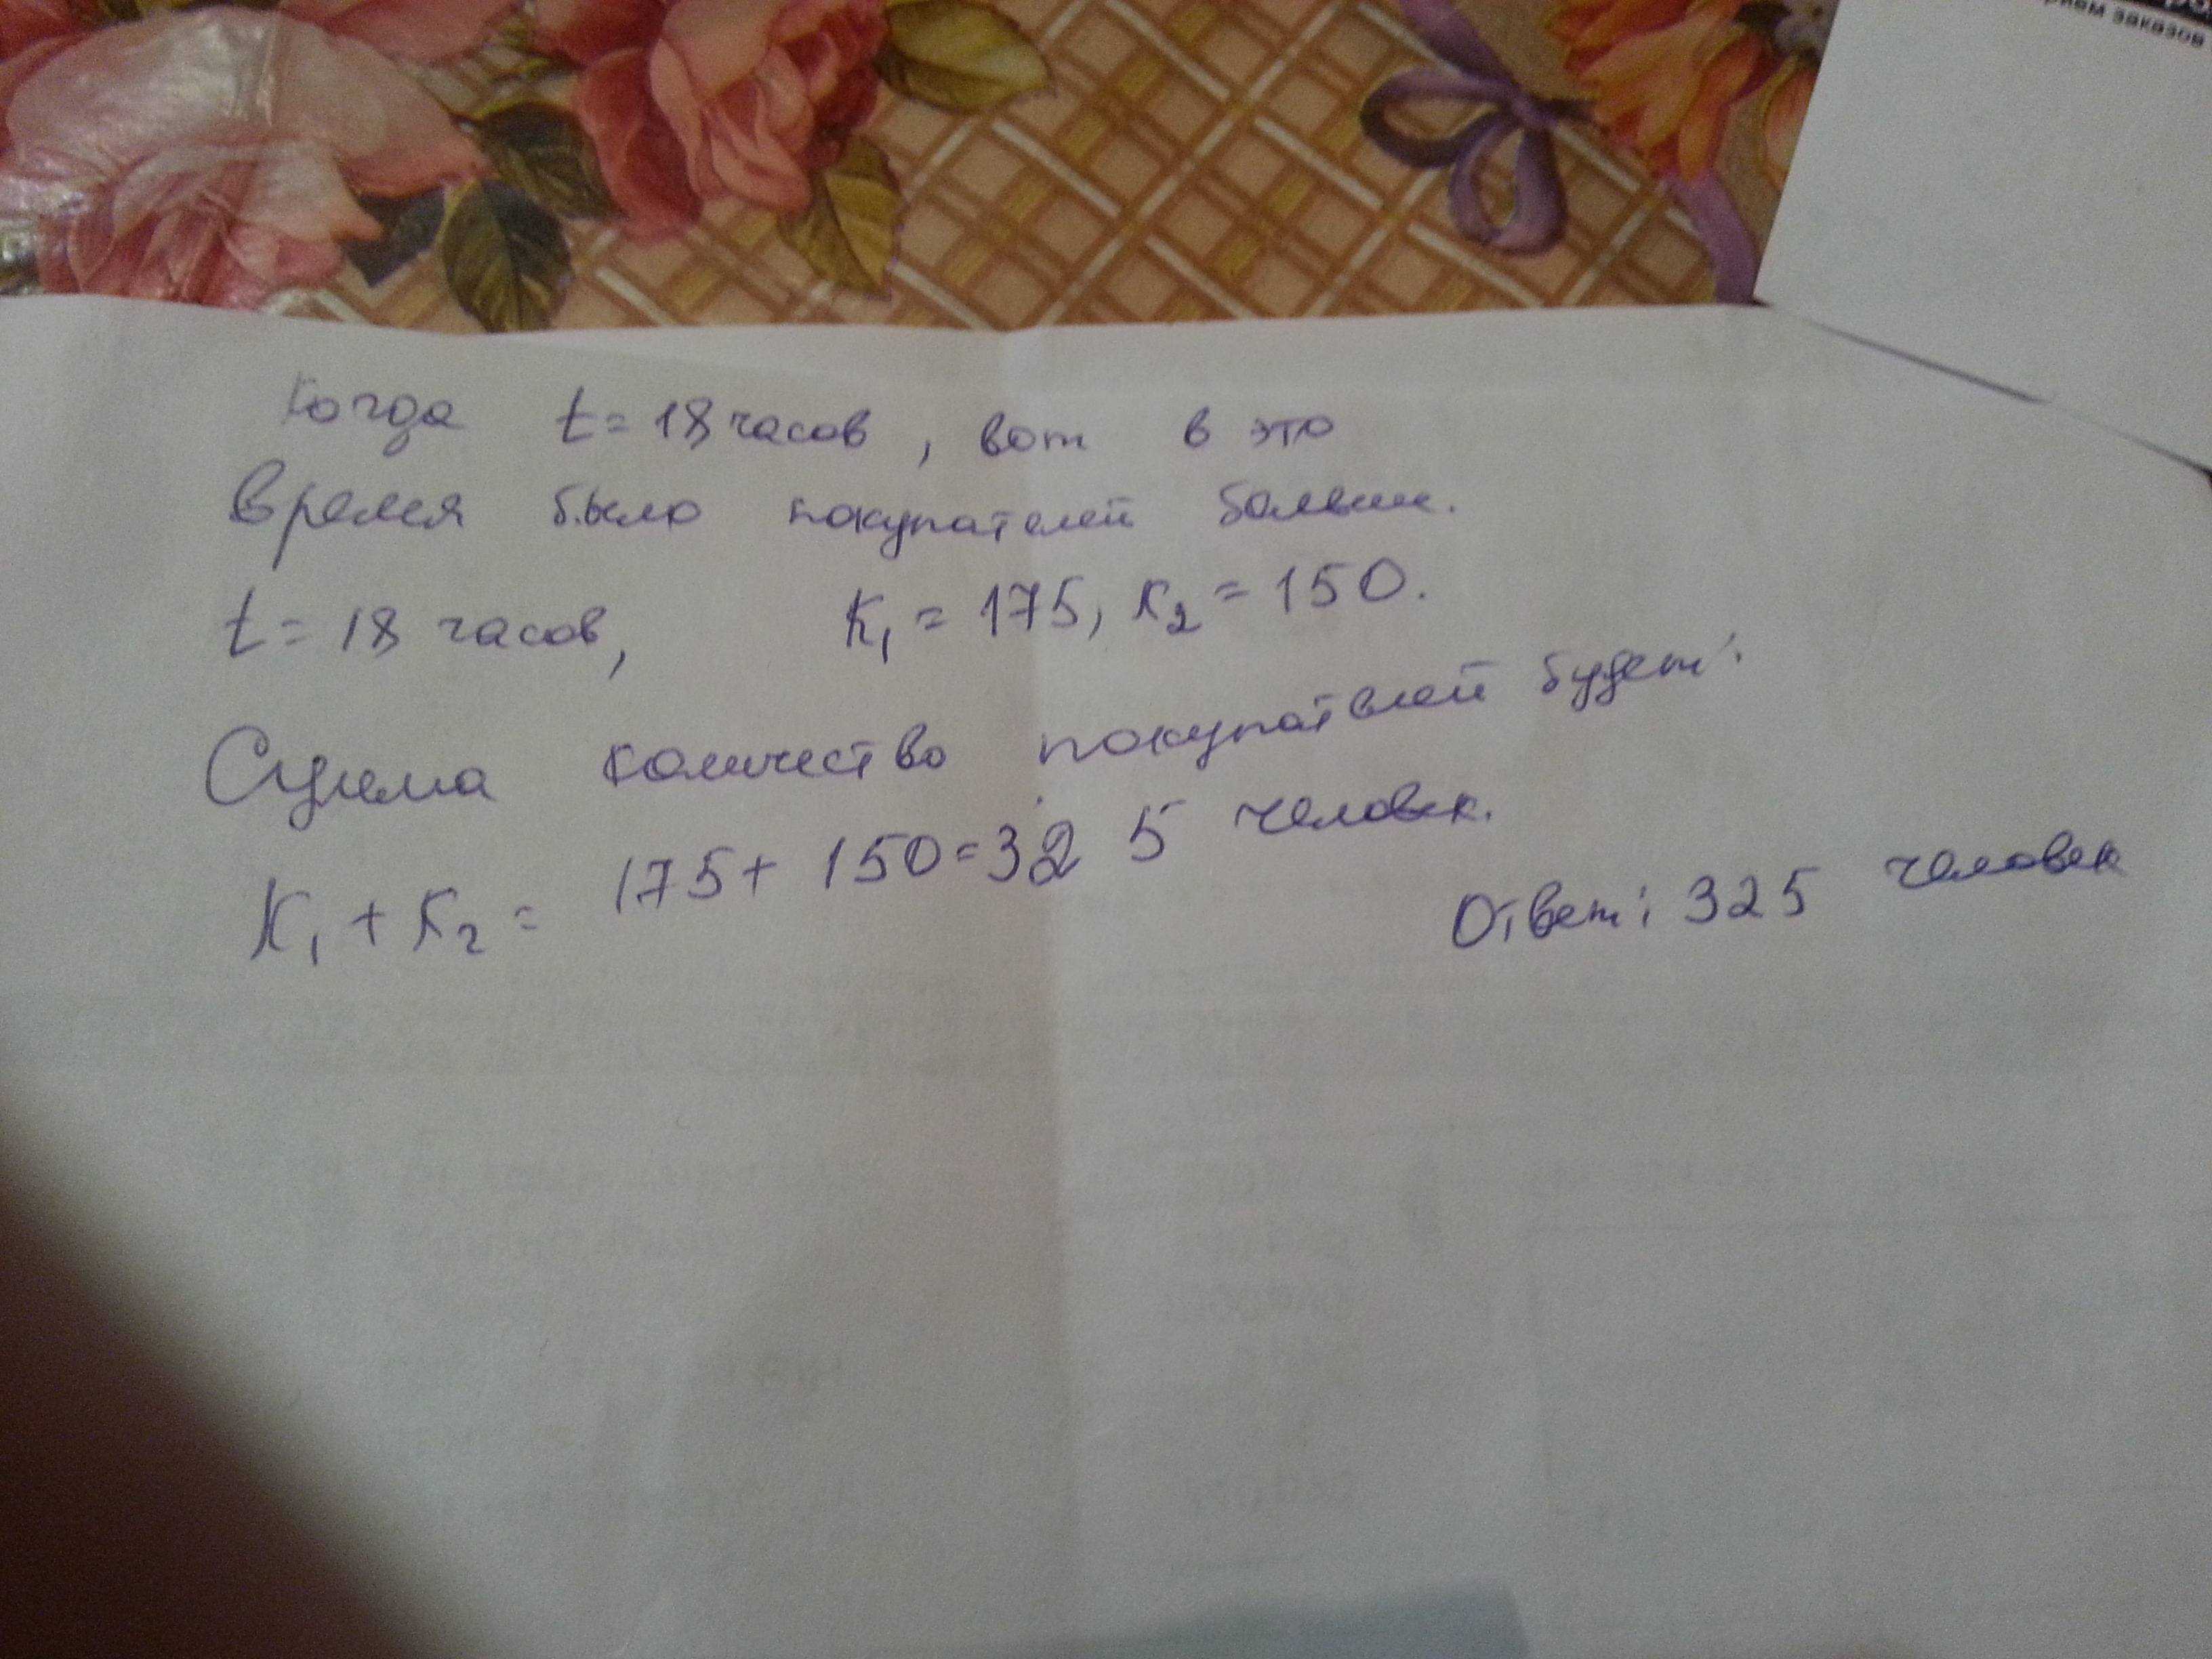 рием заказов
Когда t = 18 часов, вот в это
время было покупателей больше.
t = 18 часов, K₁ = 175, K₂ = 150.
Сумма количество покупателей будет:
K₁ + K₂ = 175 + 150 = 325 человек.
Ответ: 325 человек